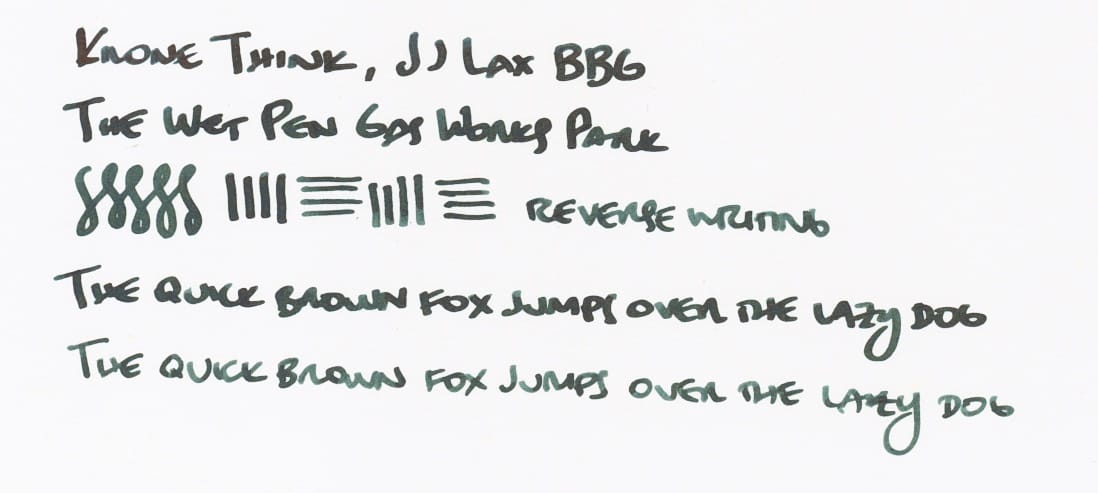 Krone Think, JJ Lax BBG
The Wet Pen Gas Works Park
Reverse Writing
The Quick Brown Fox Jumps Over The Lazy Dog
The Quick Brown Fox Jumps Over The Lazy Dog